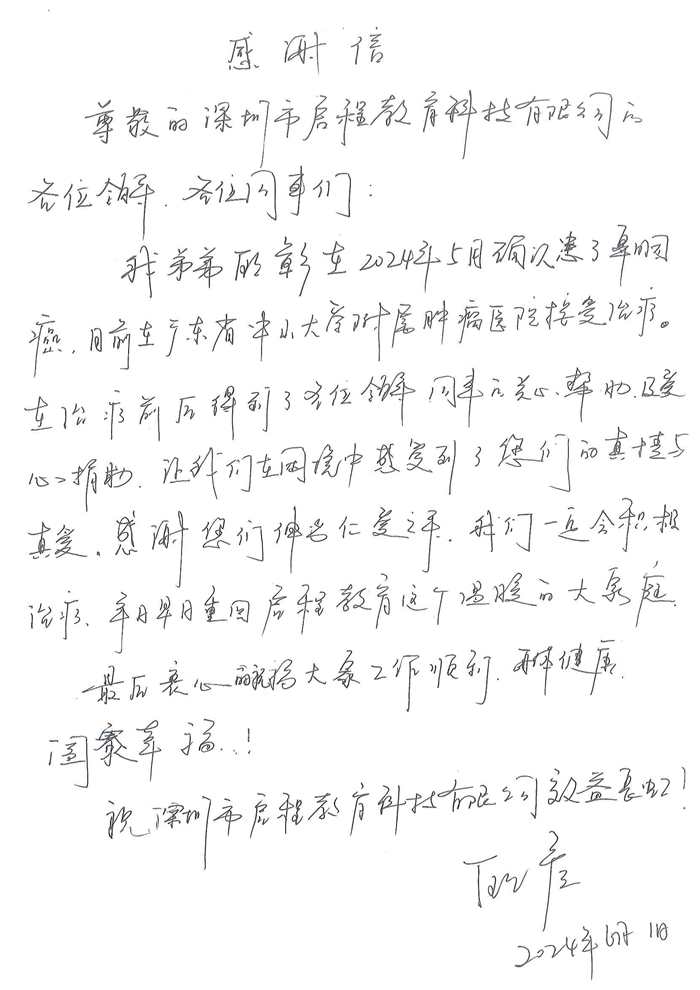 感谢信
尊敬的深圳市启程教育科技有限公司的
各位领导、各位同事们：
我弟弟 彰在2024年5月确诊患了鼻咽
癌，目前在广东省中山大学附属肿瘤医院接受治疗。
在治疗前后得到了各位领导同事的关心、帮助及爱
心捐助，让我们在困境中感受到了您们的真情与
真爱。感谢您们伸出仁爱之手，我们一定会积极
治疗、争取早日重回启程教育这个温暖的大家庭。
最后衷心祝福大家工作顺利、身体健康、
阖家幸福..!
祝深圳市启程教育科技有限公司效益长虹!
2024年6月1日